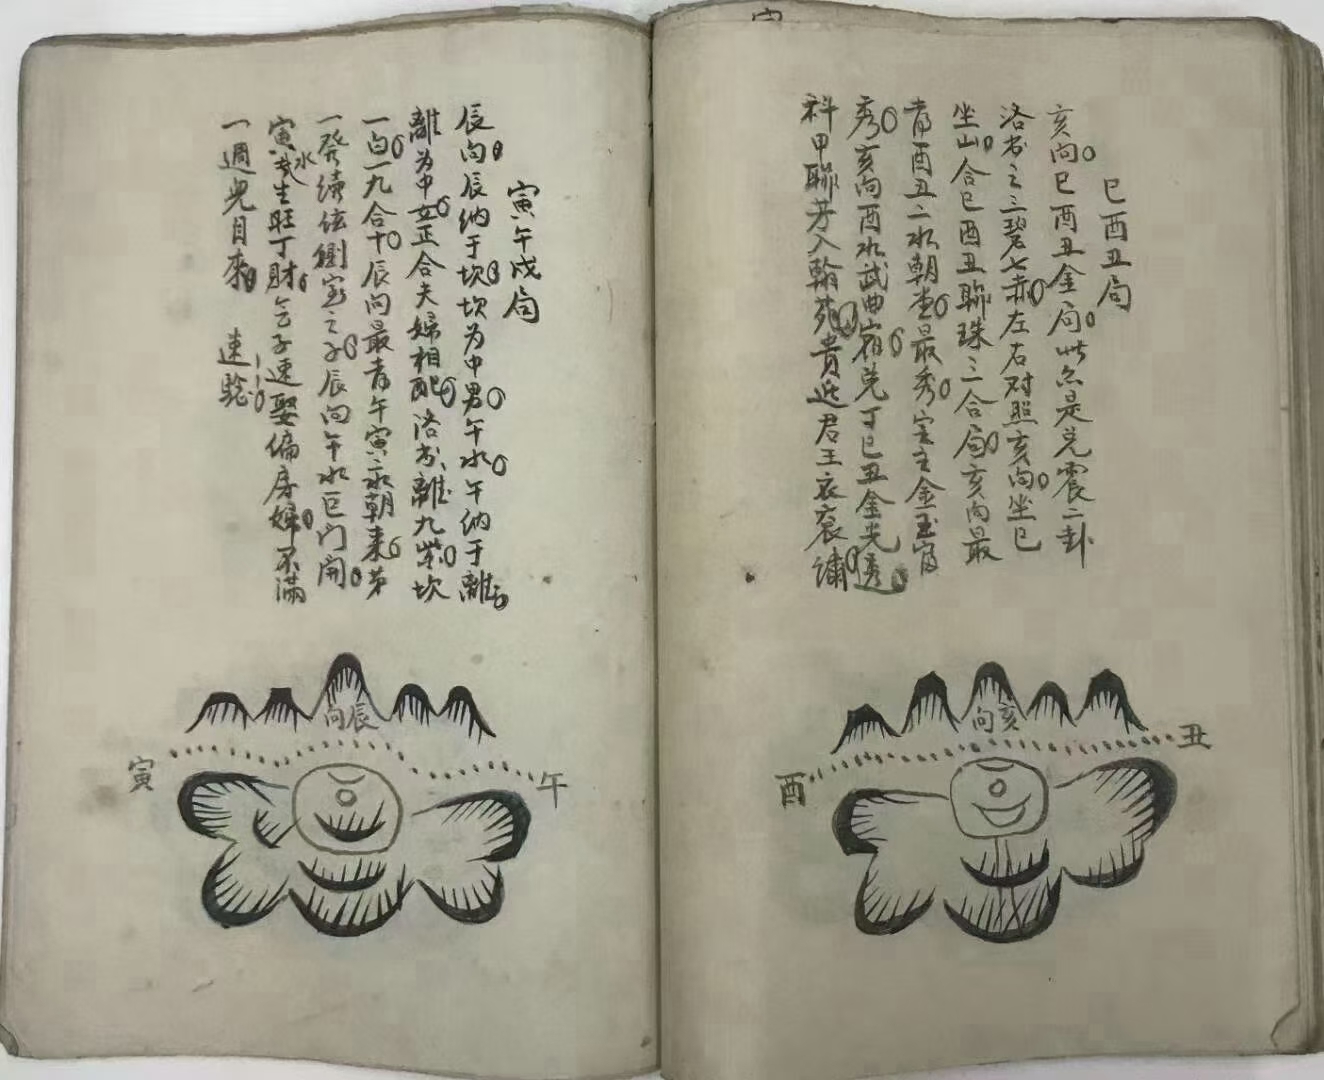 巳酉丑局
亥向巳酉丑金局此亦是兑震二卦
洛书之三碧七赤左右对照亥向坐巳
坐山合巳酉丑联珠三合局亥向最
青酉丑二水朝堂最秀宅主金玉富
秀亥向酉水武曲宿兑丁巳丑金光透
科甲联芳入翰苑贵近君王衣衮繡
亥
向
酉
丑
寅午戌局
辰向辰纳于坎坎为中男午水午纳于離
離为中女正合夫婦相配洛书離九紫坎
一白一九合十辰向最青午寅水朝来第
一發續弦側室之子辰向午水巨门開
寅水生旺丁財子速娶偏房婦不满
一週光目来 速驗
辰
向
寅
午